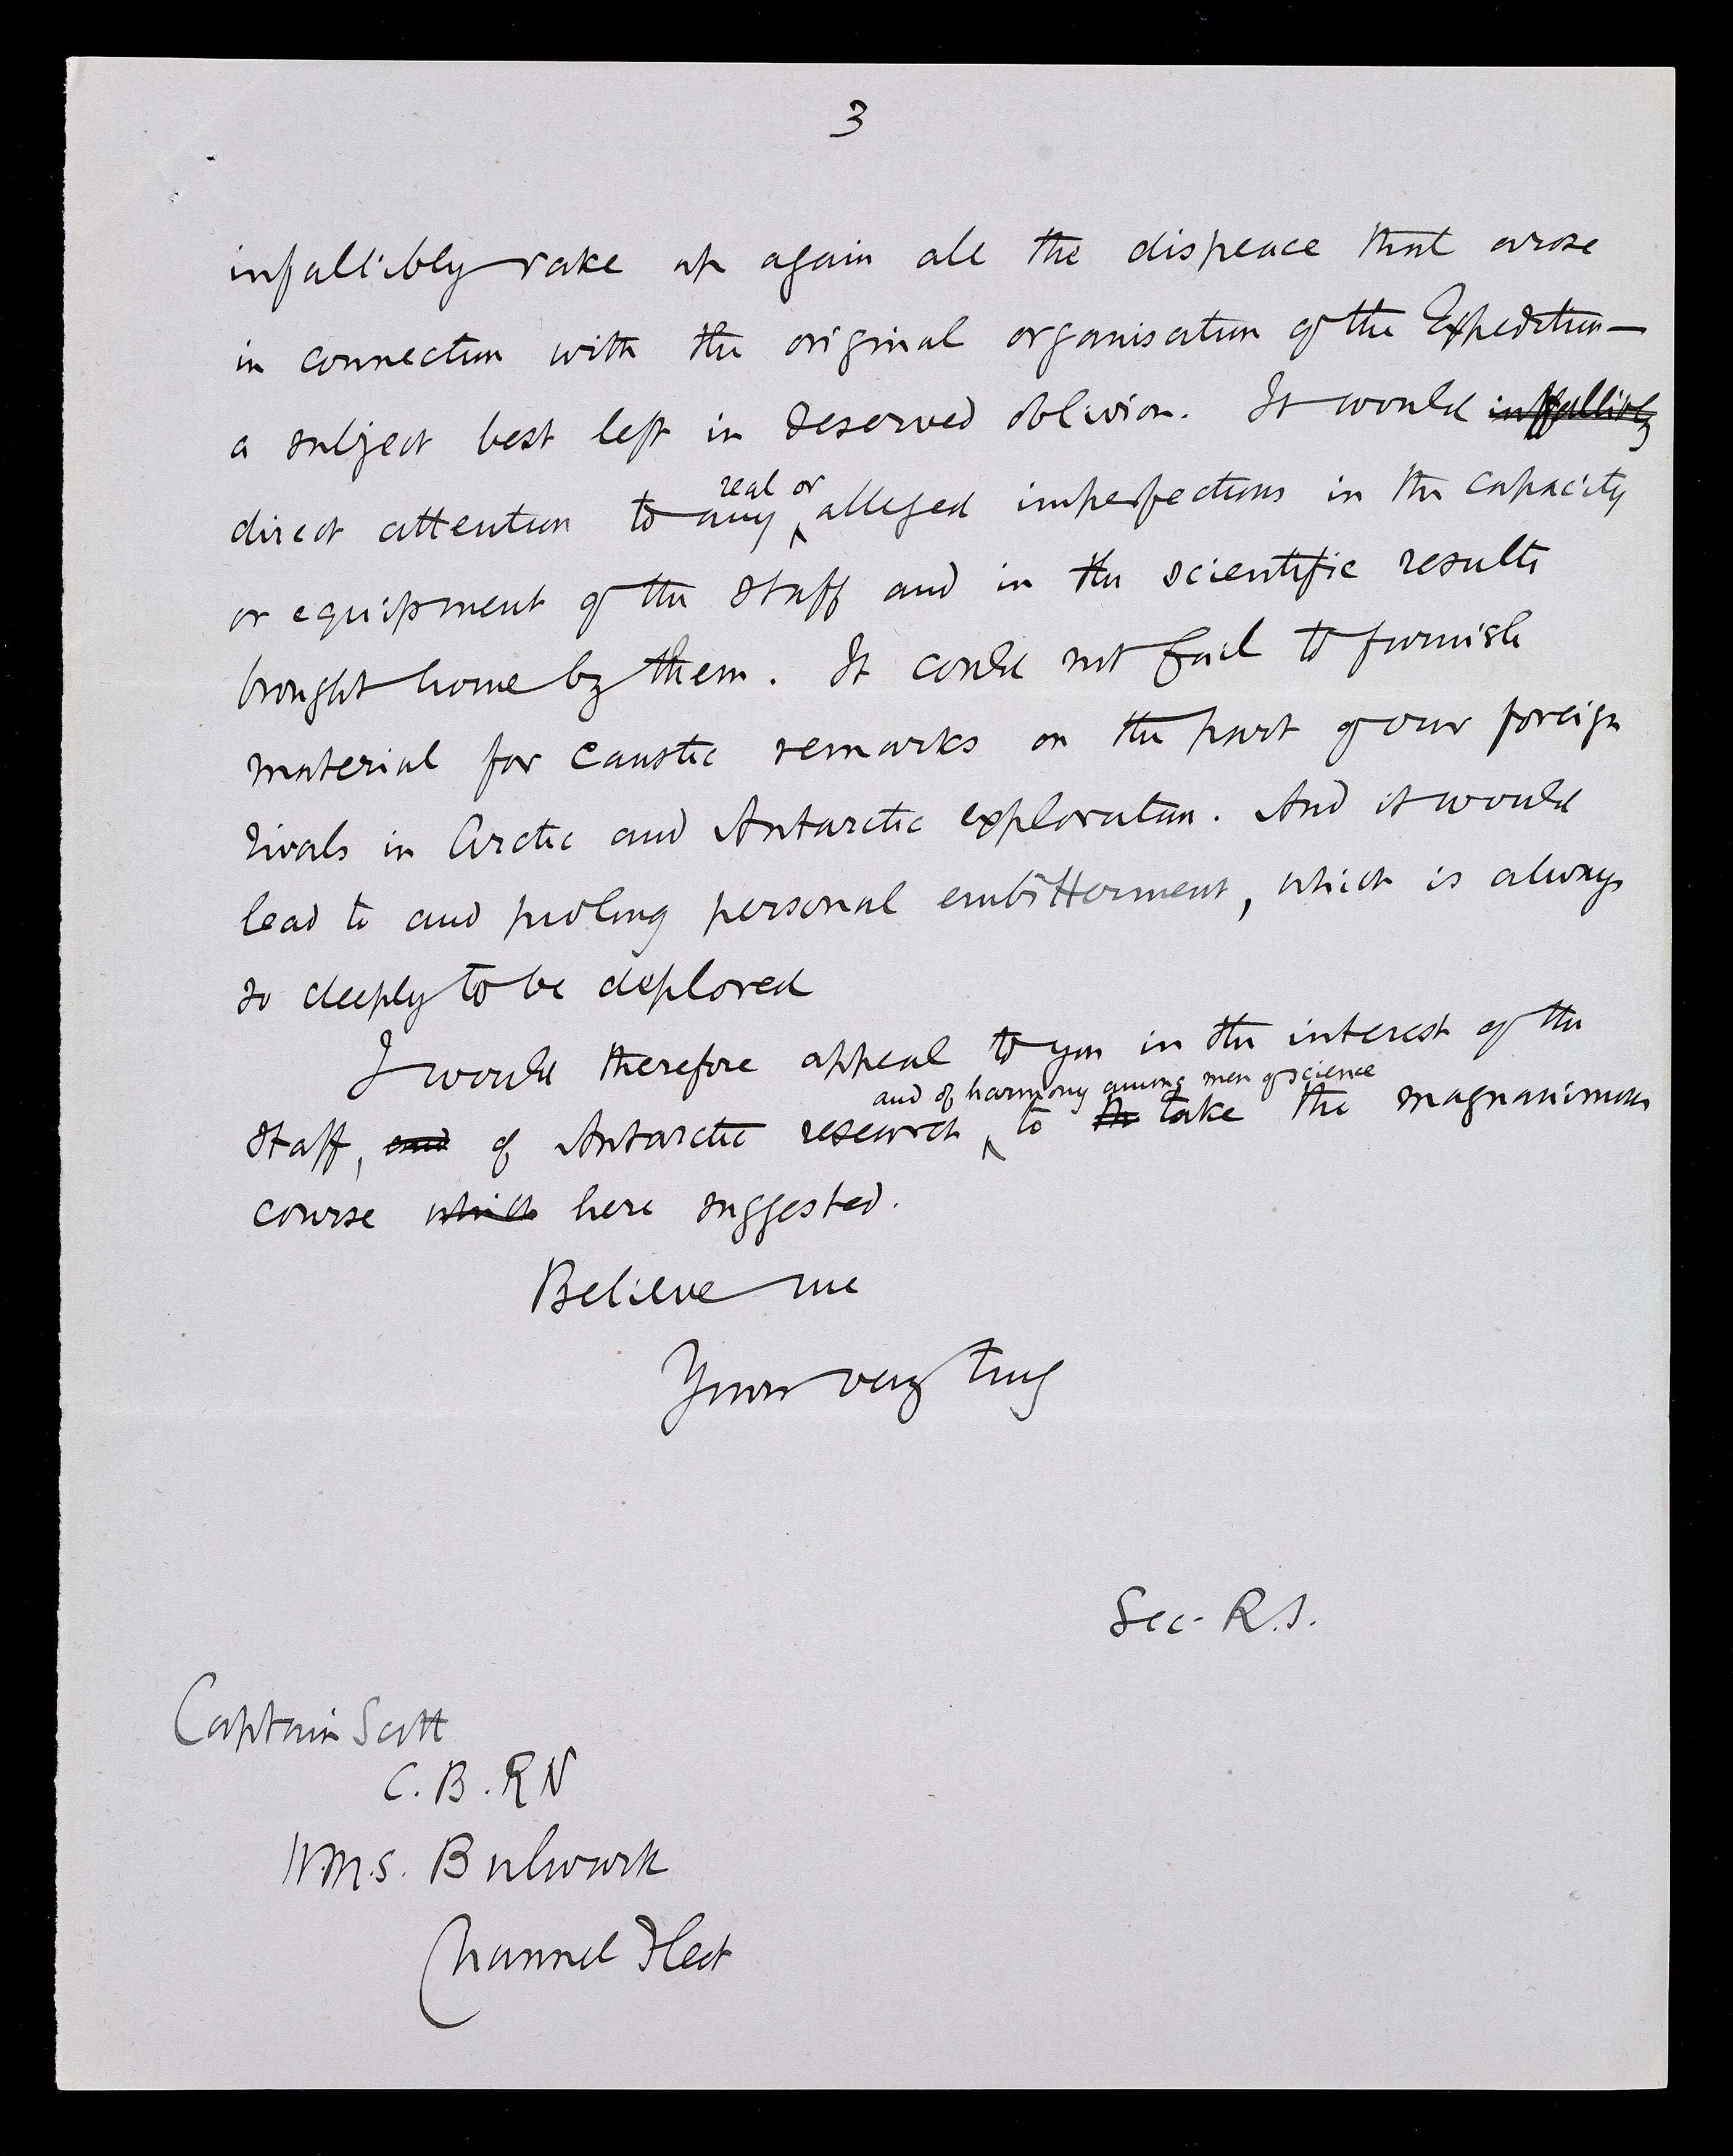 3
infallibly rake up again all the dispeace that arose
in connection with the original organisation of the Expedition—
a subject best left in deserved oblivion. It would infallibly
direct attention to any real or alleged imperfections in the capacity
or equipment of the staff and in the scientific results
brought home by them. It could not fail to furnish
material for caustic remarks on the part of our foreign
rivals in Arctic and Antarctic exploration. And it would
lead to and prolong personal embitterment, which is always
so deeply to be deplored
I would therefore appeal to you in the interest of the
and of harmony among men of science
Staff, and of Antarctic research, to take the magnanimous
course which here suggested.
Believe me
Yours very truly
Sec. R.S.
Captain Scott
C.B. RN
H.M.S. Bulwark
Channel Fleet